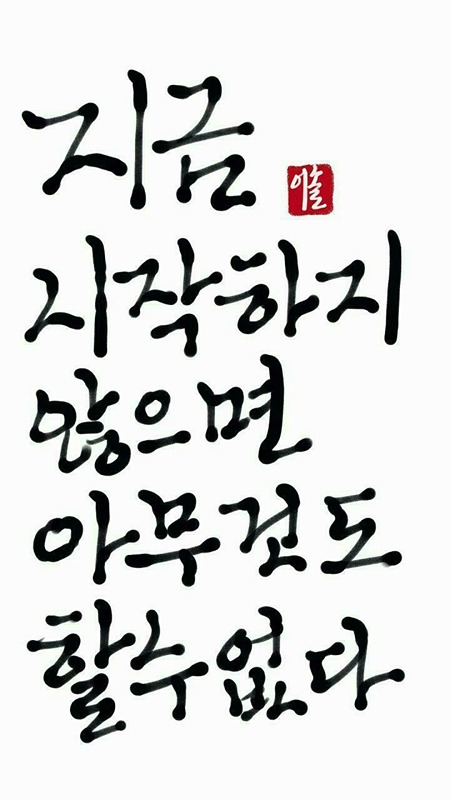 지금
시작하지
않으면
아무것도
할수없다